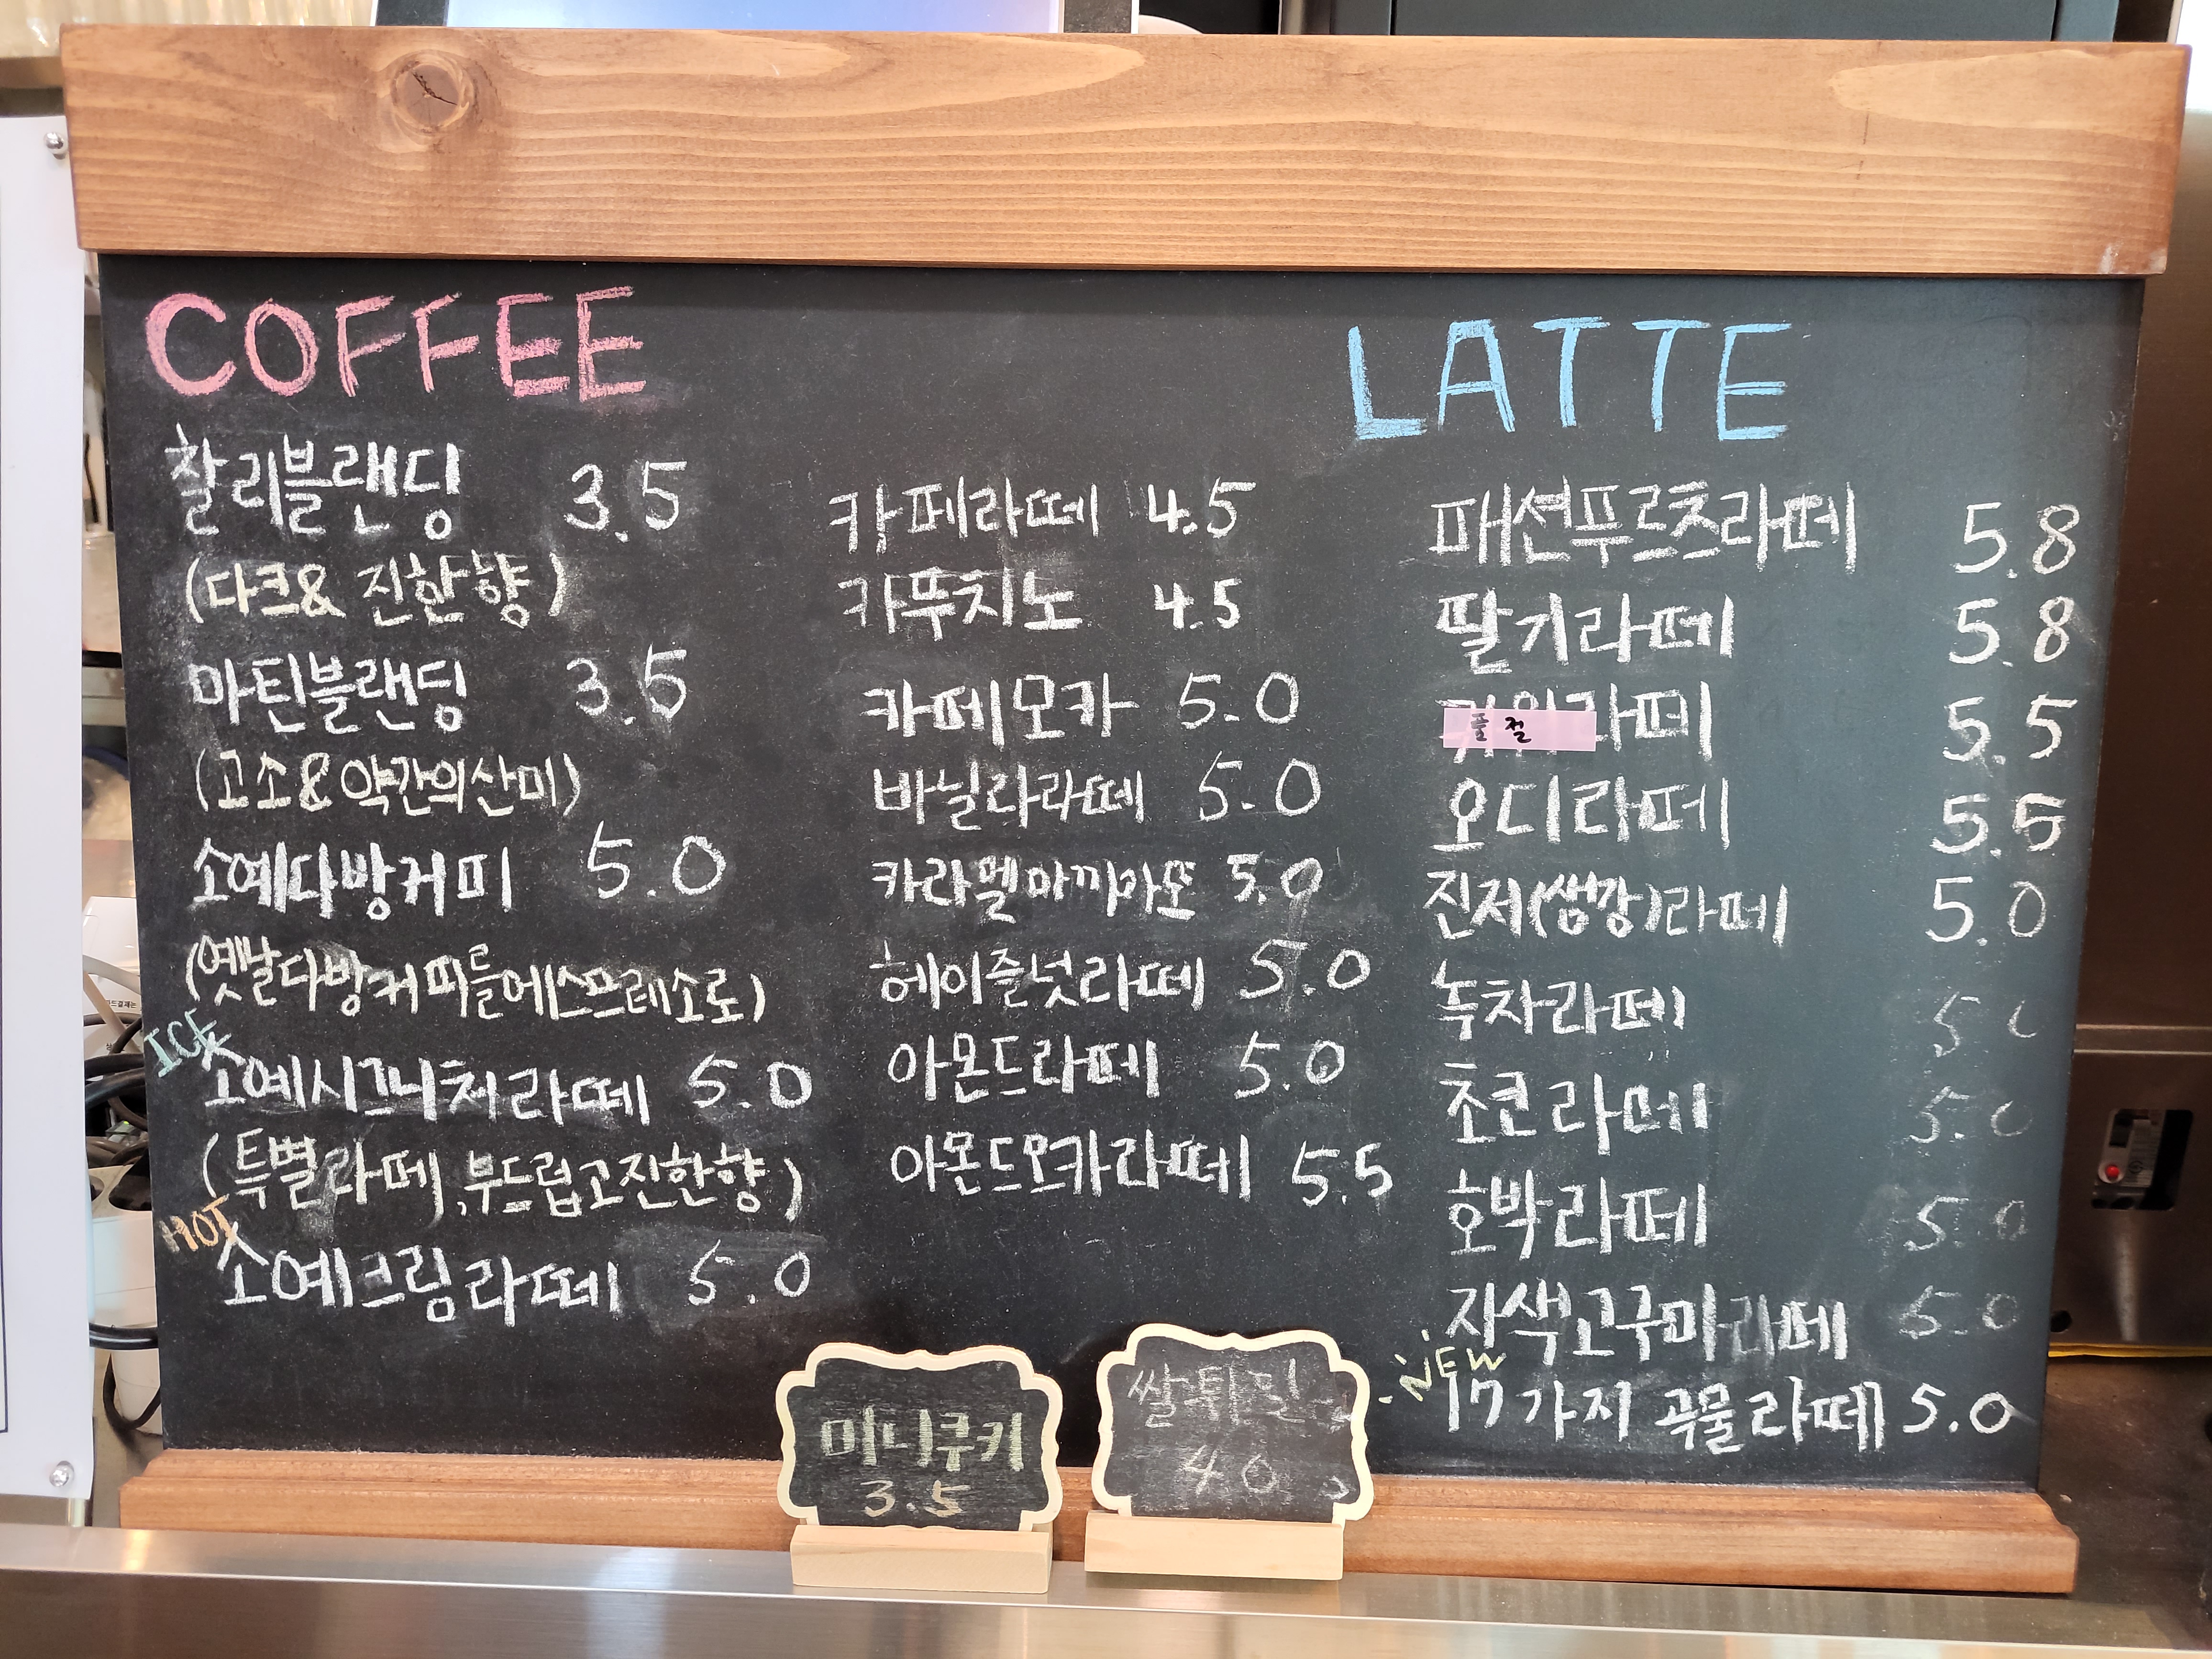 COFFEE
찰리블랜딩 3.5
(다크& 진한향)
마틴블랜딩 3.5
(고소&약간의산미)
소예다방커피 5.0
(옛날다방커피를에스프레소로)
ICE
소예시그니처라떼 5.0
(특별라떼,부드럽고진한향)
HOT
소예크림라떼 5.0
카페라떼 4.5
카푸치노 4.5
카페모카 5.0
바닐라라떼 5.0
카라멜마끼아또 5.0
헤이즐넛라떼 5.0
아몬드라떼 5.0
아몬드모카라떼 5.5
LATTE
패션푸르츠라떼 5.8
딸기라떼 5.8
품절 라떼 5.5
오디라떼 5.5
진저(생강)라떼 5.0
녹차라떼 5.0
초코라떼 5.0
호박라떼 5.0
자색고구마라떼 5.0
NEW
17가지 곡물라떼 5.0
미니쿠키
3.5
쌀튀밀
4.0